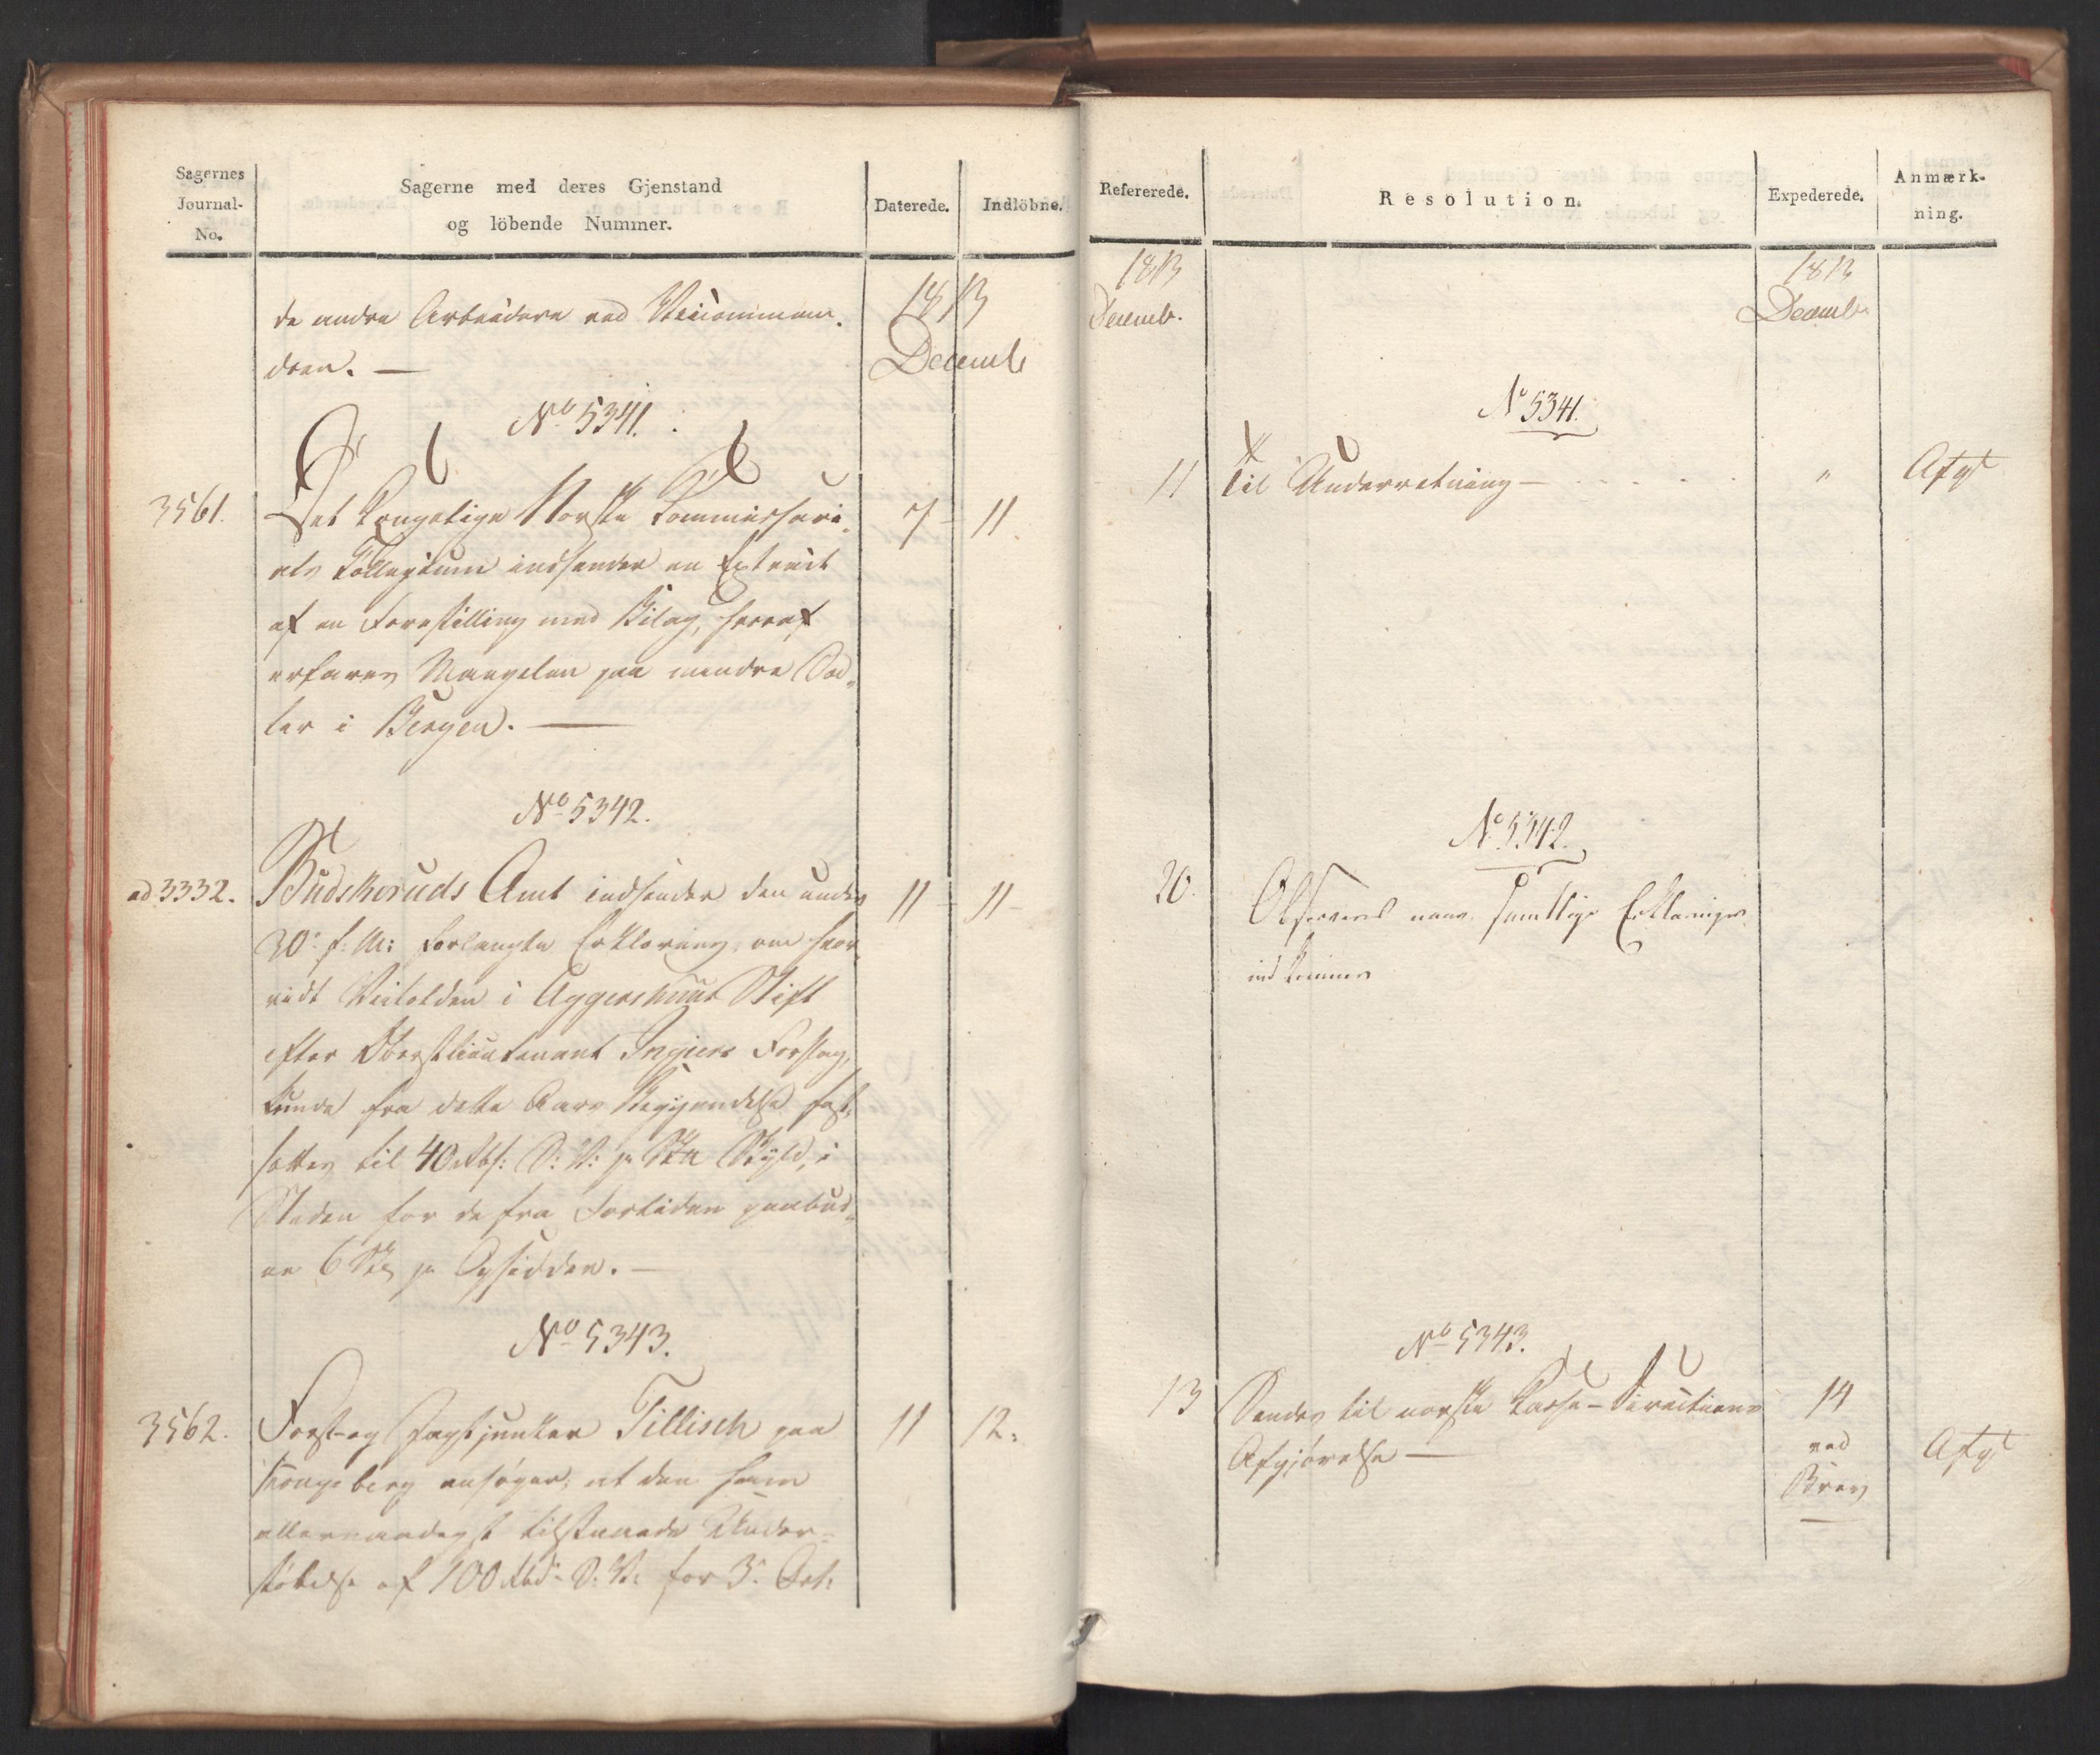 Sagernes
Journal-
No.
Sagerne med deres Gjenstand
og löbende Nummer.
Daterede.
Indlöbne.
de andre Arbeidere ved
dren. —
1813
Decemb
No 5341.
3561.
Det Kongelige Norske Commissari-
7 - 11.
ats Collegium indsender en Extract
af en Forestilling med Bilag, hvoraf
erfares Mangelen paa mindre Sed-
ler i Bergen. —
No 5342.
ad 3332.
Budskeruds Amt indsender den under
11 - 11 -
30e f: M: forlangte Erklæring, om hvor-
vidt Veitolden i Aggershuus Stift
efter Oberstlieutenant Ingiers Forslag,
kunde fra dette Aars Begyndelse fast-
sættes til 40 Rbs: S: V: pr Skyld, i
Steden for de fra Fortiden paabud-
ne 6 pr Opsidder. —
No 5343.
3562.
Forst- og Jagtjunker Tillisch paa
11
12.
Kongsberg ansøger, at den ham
allernaadigst tilstaaede Under-
støttelse af 100 Rbd S: V: for 3
Refererede.
Resolution.
Expederede.
Anmærk-
ning.
1813
Decemb.
1813
Decemb
No 5341.
11
Til Underretning —
"
Afg
No 5342.
20.
Observeres naar samtlige Erklæringer
indkommer
No 5343.
13
Sendes til norske Casse-Directions
14
Afgjørelse —
ved
Brev
Afg